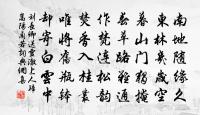 南地隨緣久
東林幾歲空
暮山門獨掩
春草路難通
作梵連松韻
焚香入桂叢
唯將舊瓶鉢
却寄白雲中
劉長卿送靈澈上人歸
嵩陽蘭若